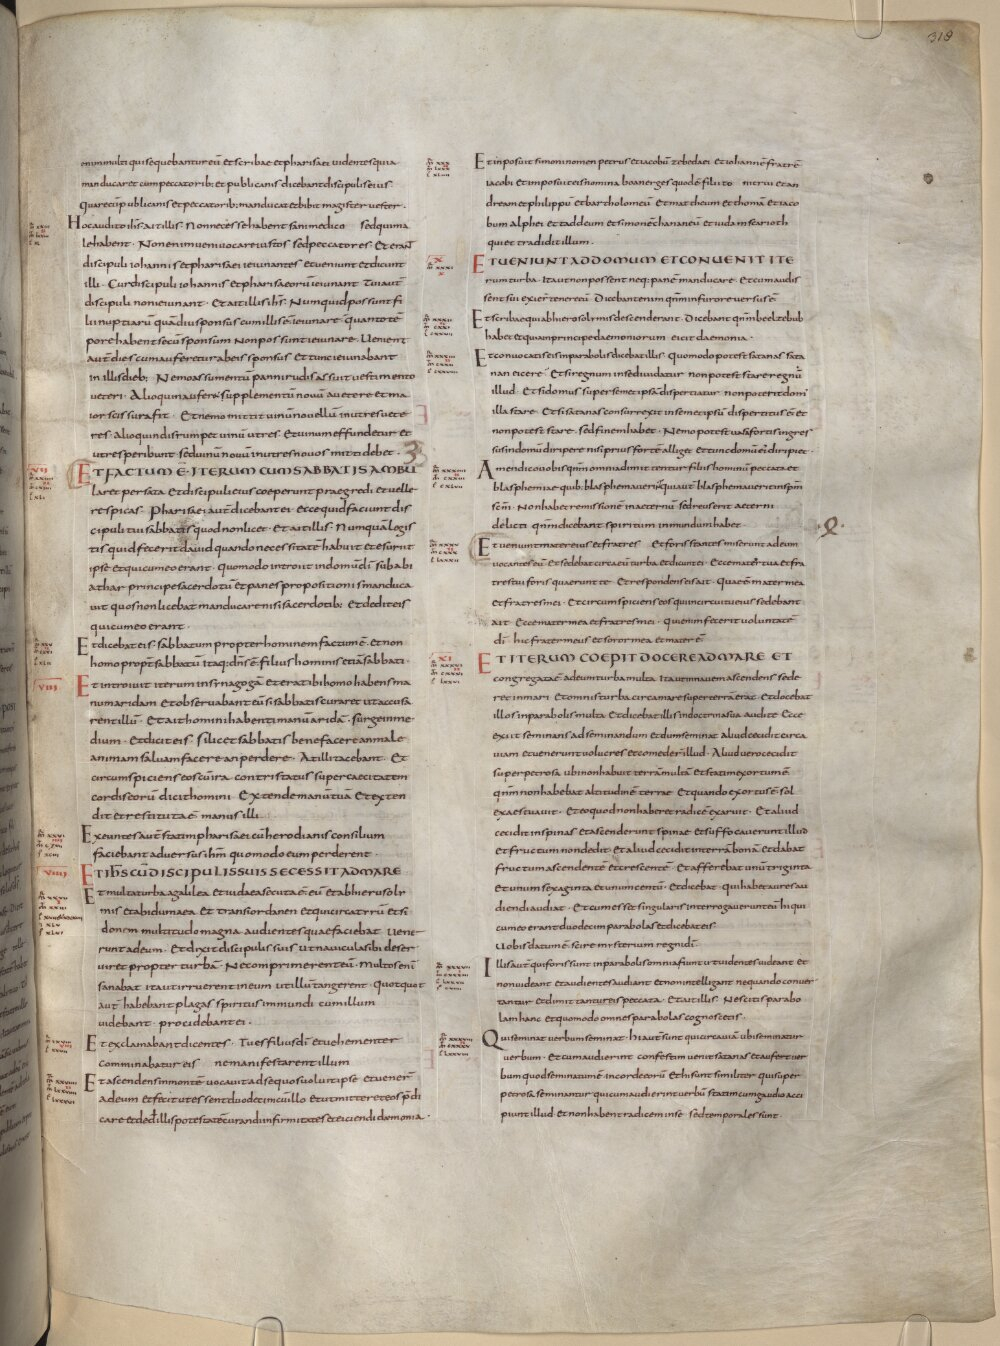 318
enim multi qui sequebantur eū Et scribae et pharisaei uidentes quia
manducaret cum peccatorib; et publicanis dicebant discipulis eius·
Quare cū publicanis et peccatorib; manducat et bibit magister uester·
Hoc audito ih̄s ait illis· Non necesse habent sani medico sed qui ma
le habent· Non enim ueni uocare iustos sed peccatores· Et eran̄
discipuli iohannis et pharisaei ieiunantes et ueniunt et dicunt
illi· Cur discipuli iohannis et pharisaeorū ieiunant Tui aut̄
discipuli non ieiunant· Et ait illis ih̄s· Numquid possunt fi
lii nuptiarū quamdiu sponsus cum illis ē ieiunare· quanto tē
pore habent secū sponsum Non possunt ieiunare· Uenient
aut̄ dies cum auferetur ab eis sponsus Et tunc ieiunabant
in illis dieb; Nemo assumentū panni rudis assuit uestimento
ueteri· Alioquin aufert supplementū nouū a uetere et ma
ior scissura fit· Et nemo mittit uinū nouellū in utres uete
res· Alioquin disrumpet uinū utres· Et uinum effundetur et
utres peribunt sed uinū nouū in utres nouos mitti debet·
VII
ET FACTUM Ē· ITERUM CUM SABBATIS AMBU
laret per sata Et discipuli eius coeperunt praegredi et uelle
re spicas· Pharisaei aut̄ dicebant ei· Ecce quid faciunt dis
cipuli tui sabbatis quod non licet· Et ait illis· Numquā legis
tis quid fecerit dauid quando necessitatē habuit et esuriit
ipse et qui cum eo erant· Quomodo introiit in domū dī sub abi
athar principe sacerdotū et panes propositionis manduca
uit quos non licebat manducare nisi sacerdotib; Et dedit eis
qui cum eo erant·
Et dicebat eis· Sabbatum propter hominem factum ē· et non
homo propter sabbatū Itaq; dn̄s ē filius hominis etiā sabbati·
VIII
Et introiuit iterum in synagoga Et erat ibi homo habens ma
num aridam Et obseruabant eū si sabbatis curaret ut accusa
rent illū· Et ait homini habenti manū aridā· Surge in me
dium· Et dicit eis· Si licet sabbatis bene facere an male
animam saluam facere an perdere· At illi tacebant· Et
circumspiciens eos cū ira contristatus super caecitatem
cordis eorū dicit homini Extende manū tuā Et exten
dit et restituta ē manus illi·
Exeuntes aut̄ statim pharisaei cū herodianis consilium
faciebant aduersus ih̄m quomodo eum perderent·
VIIII
ET IH̄S CŪ DISCIPULIS SUIS SECESSIT AD MARE
Et multa turba a galilea et iudaea secuta ē eū Et ab hierusoly
mis et ab idumaea Et trans iordanen et qui circa tyrū et si
donem multitudo magna· audientes quae faciebat Uene
runt ad eum· Et dixit discipulis suis ut nauicula sibi deser
uiret propter turbā· Ne comprimerent eū· Multos enī
sanabat ita ut irruerent in eum ut illū tangerent· Quotquot
aut̄ habebant plagas spiritus immundi cum illum
uidebant· procidebant ei·
Et exclamabant dicentes· Tu es filius dī· Et uehementer
comminabatur eis ne manifestarent illum
Et ascendens in montē uocauit ad se quos uoluit ipse et uener̄
ad eum Et fecit ut essent duodecim cū illo Et ut mitteret eos p̄di
care et dedit illis potestatē curandi infirmitates et eiciendi daemonia·
Et inposuit simoni nomen petrus et iacobū zebedaei et iohannē fratrē
iacobi Et imposuit eis nomina boanerges quod ē filii tonitrui et an
dream et philippū et bartholomeū Et matheum et thomā et iaco
bum alphei et taddeum et simonē chananeū et iuda inscarioth
qui et tradidit illum·
X
ET UENIUNT AD DOMUM ET CONUENIT ITE
rum turba· Ita ut non possent neq; panē manducare· Et cum audis
sent sui exier̄ tenere eū Dicebant enim qm̄ in furore uersus ē
Et scribae qui ab hierosolymis descenderant· Dicebant qm̄ beelzebub
habet et quia in principe daemoniorum eicit daemonia·
Et conuocatis eis in parabolis dicebat illis· Quomodo potest satanas sata
nan eicere Et si regnum in se diuidatur· non potest stare regnū
illud· Et si domus super semet ipsā dispertiatur· non poterit dom̄
illa stare· Et si satanas consurrexit in semet ipsū dispertitus ē et
non potest stare· sed finem habet· Nemo potest uasa fortis ingres
sus in domū diripere nisi prius fortē alliget Et tunc domū ei diripiet·
Amen dico uobis qm̄ omnia dimittentur filiis hominū peccata et
blasphemiae quib; blasphemauerint qui aut̄ blasphemauerit in sp̄m
sc̄m· Non habet remissionē in aeternū· Sed reus erit aeterni
delicti qm̄ dicebant spiritum inmundum habet·
Et uenit mater eius et fratres Et foris stantes miserunt ad eum
uocantes eū Et sedebat circa eū turba Et dicunt ei· Ecce mater tua et fra
tres tui foris quaerunt te· Et respondens eis ait· Quae ē mater mea
et fratres mei· Et circumspiciens eos qui in circuitu eius sedebant
ait· Ecce mater mea et fratres mei· Qui enim fecerit uoluntatē
dī· hic frater meus et soror mea et mater ē
XI
ET ITERUM COEPIT DOCERE AD MARE ET
congregata ē ad eum turba multa Ita ut in nauem ascendens sede
ret in mari Et omnis turba circa mare super terrā erat· Et docebat
illos in parabolis multa Et dicebat illis in doctrina sua· Audite Ecce
exiit seminans ad seminandum Et dum seminat aliud cecidit circa
uiam et uenerunt uolucres et comeder̄ illud· Aliud uero cecidit
super petrosa· ubi non habuit terrā multā Et statim exortum ē
qm̄ non habebat altitudinē terrae Et quando exortus ē sol
exaestuauit· Et eo quod non haberet radicē exaruit· Et aliud
cecidit in spinas et ascenderunt spinae et suffocauerunt illud
et fructum non dedit· Et aliud cecidit in terrā bonā et dabat
fructum ascendentē et crescentē· Et afferebat unū triginta
et unum sexaginta et unum centū· Et dicebat· qui habet aures au
diendi audiat· Et cum esset singularis interrogauerunt eū hi qui
cum eo erant duodecim parabolas et dicebat eis·
Uobis datum ē scire mysterium regni dī·
Illis aut̄ qui foris sunt in parabolis omnia fiunt ut uidentes uideant et
non uideant et audientes audiant et non intelligant nequando conuer
tantur et dimittantur eis peccata· Et ait illis· Nescitis parabo
lam hanc et quomodo omnes parabolas cognoscetis·
Qui seminat uerbum seminat· hi aut̄ sunt qui circa uiā ubi seminatur
uerbum· Et cum audierint confestim uenit satanas et aufert uer
bum quod seminatum ē in corde eorū Et hi sunt similiter qui super
petrosa seminantur qui cum audierint uerbū statim cum gaudio acci
piunt illud Et non habent radicem in se· sed temporales sunt·